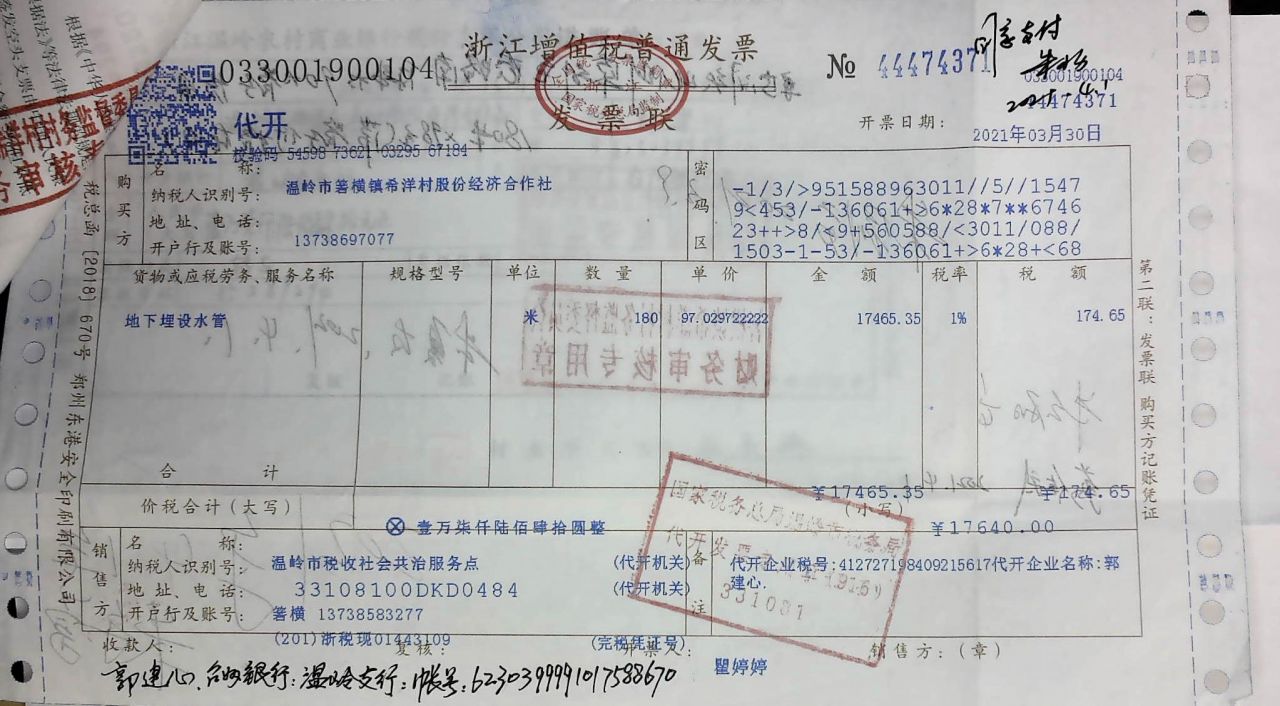 浙江增值税普通发票
033001900104
№ 44474371
033001900104
44474371
同意支付
发票联
代开
开票日期:
2021年03月30日
校验码 54598 73621 03295 67184
购买方
名称:
温岭市箬横镇希洋村股份经济合作社
纳税人识别号:
地址、电话:
开户行及账号:
13738697077
密码区
-1/3/>951588963011//5//1547
9<453/-136061+>6*28*7**6746
23++>8/<9+560588/<3011/088/
1503-1-53/-136061+>6*28+<68
货物或应税劳务、服务名称 规格型号 单位 数量 单价 金额 税率 税额
地下埋设水管 米 180 97.029722222 17465.35 1% 174.65
合计
¥17465.35 ¥174.65
价税合计(大写)
⊗壹万柒仟陆佰肆拾圆整
(小写)
¥17640.00
销售方
名称:
温岭市税收社会共治服务点 (代开机关)
纳税人识别号:
33108100DKD0484 (代开机关)
地址、电话:
箬横 13738583277
开户行及账号:
(201)浙税现01443109 (完税凭证号)
备注
代开企业税号:412727198409215617代开企业名称:郭
建心
收款人:
复核:
开票人:
瞿婷婷
销售方:(章)
郭建心、台州银行:温岭支行:帐号:6230399991017588670
税总函[2018]670号 郑州东港安全印刷有限公司
第二联:发票联 购买方记账凭证
331081
财务审核专用章